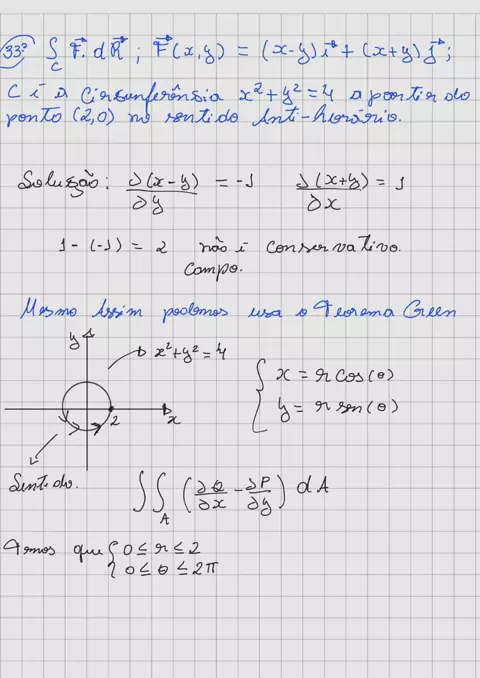 33ª) ∫_C F⃗.dR⃗ ; F⃗(x,y) = (x-y)i⃗ + (x+y)j⃗ ;
C é a Circunferência x² + y² = 4 a partir do
ponto (2,0) no sentido Anti-horário.
Solução: ∂(x-y)/∂y = -1 ∂(x+y)/∂x = 1
1-(-1) = 2 não é conservativo.
Campo.
Mesmo Assim podemos usa o Teorema Green
y
x²+y²=4
x = r cos(θ)
y = r sen(θ)
2
x
Sentido.
∫∫_A (∂Q/∂x - ∂P/∂y) dA
Temos que { 0 ≤ r ≤ 2
0 ≤ θ ≤ 2π